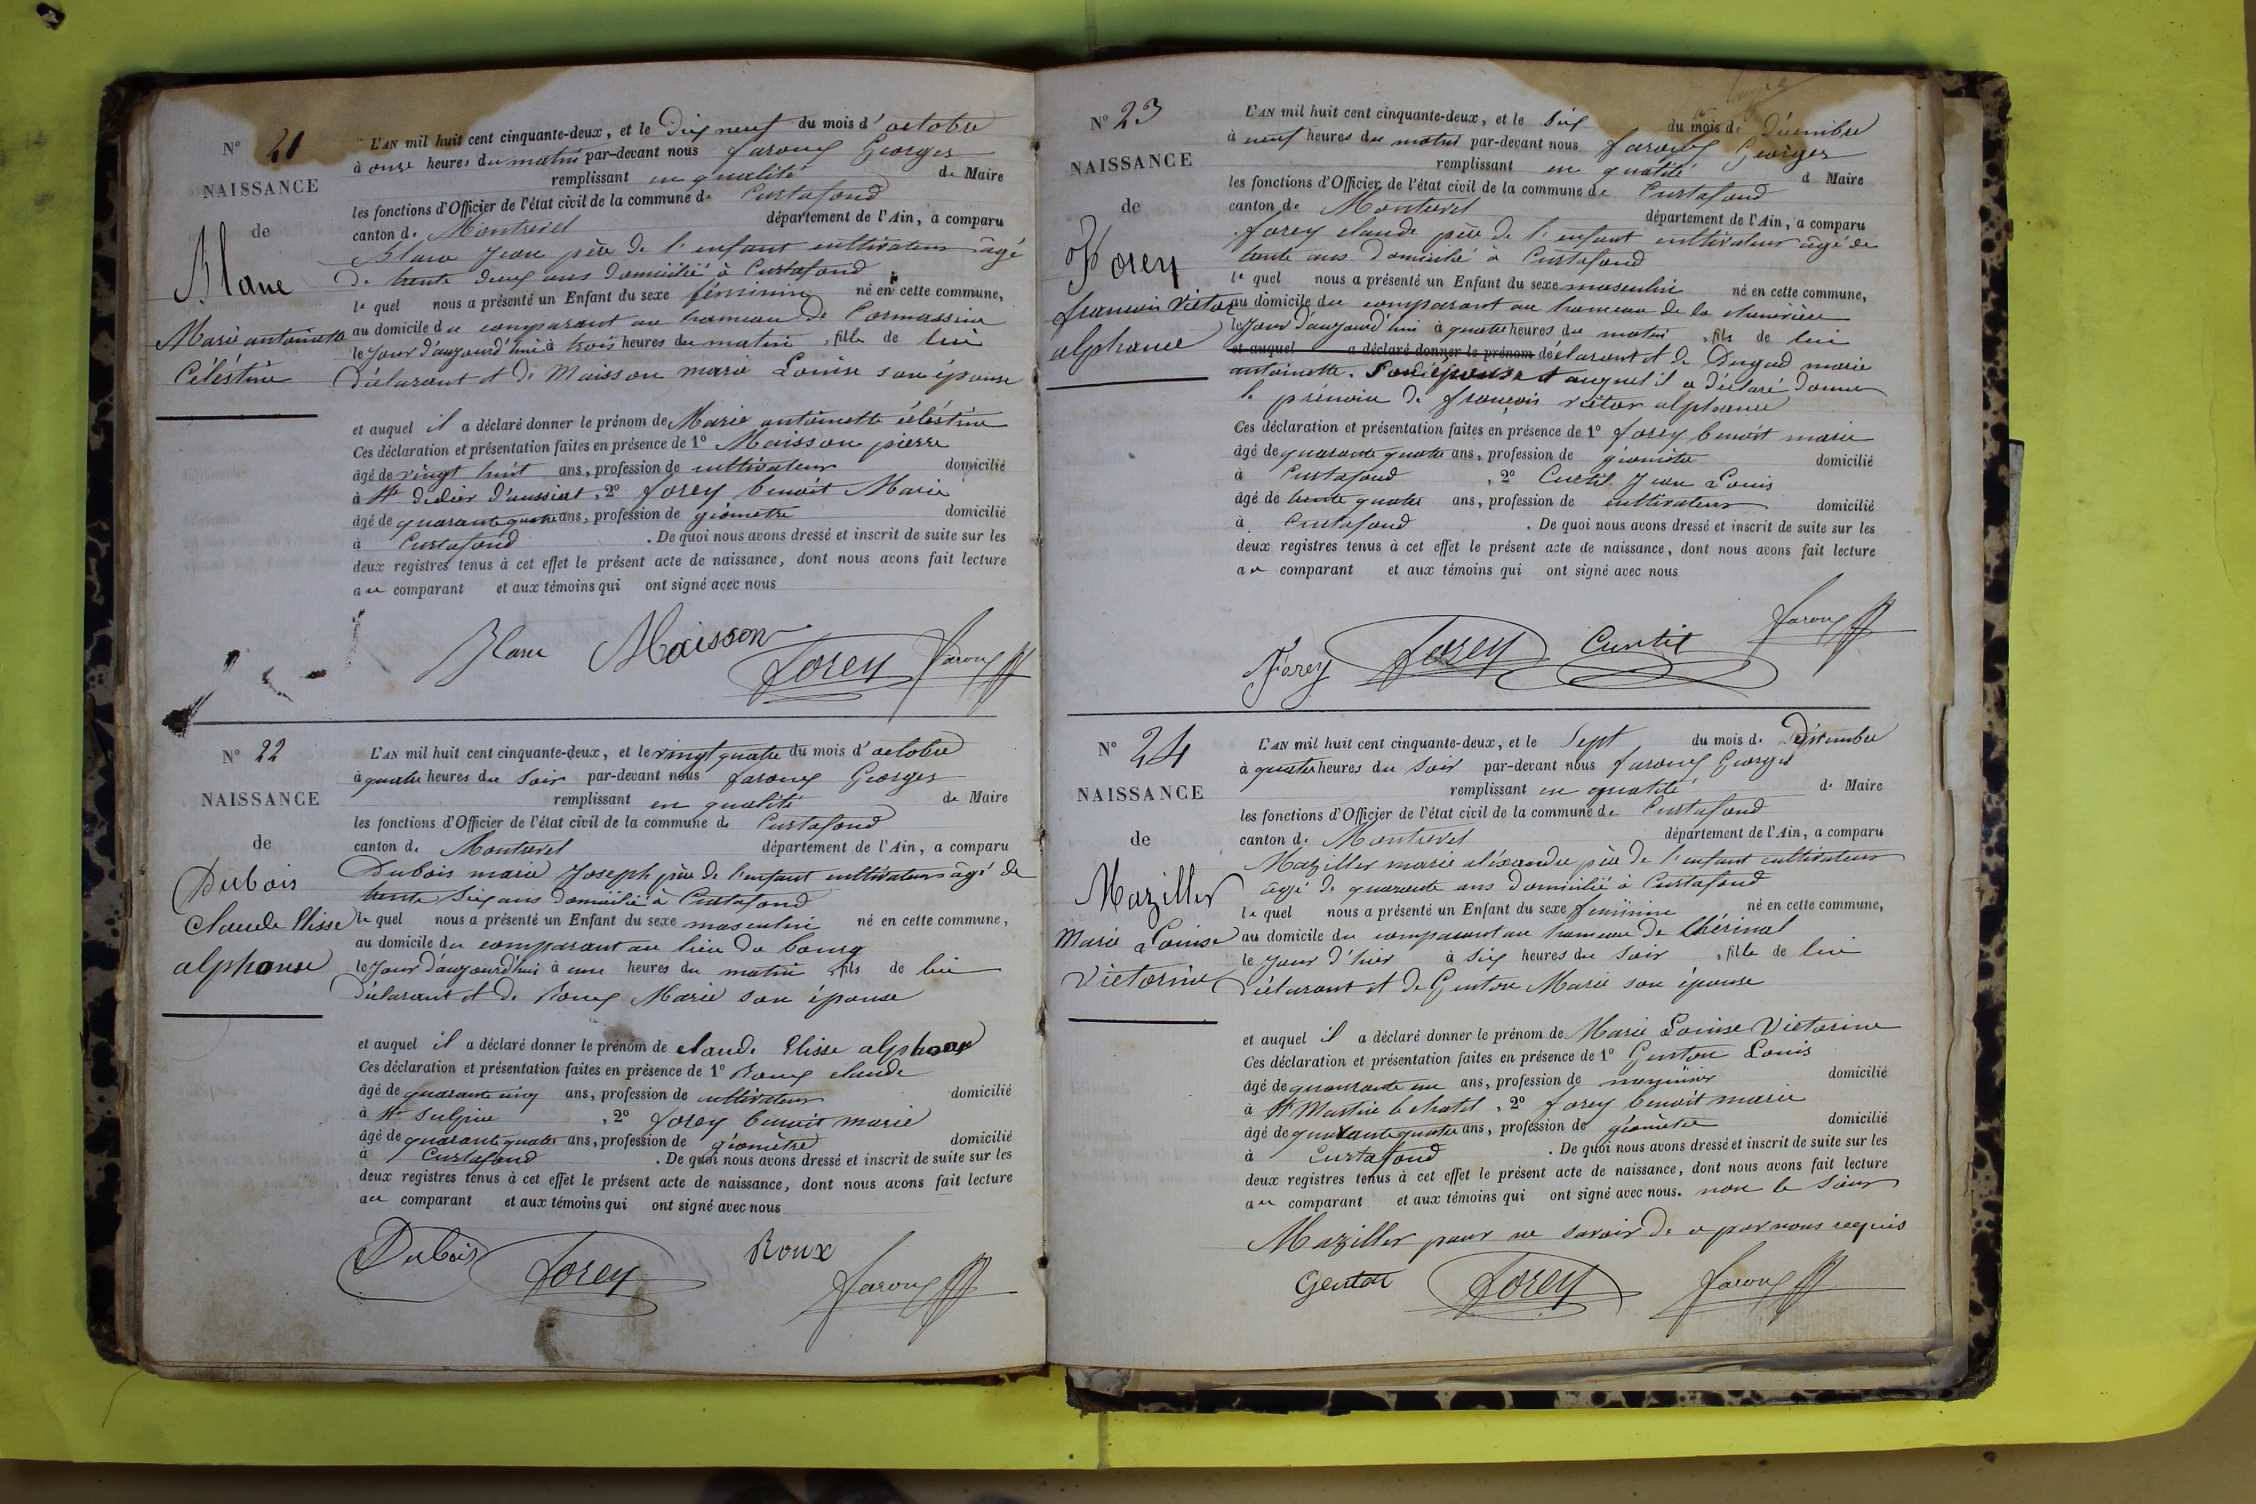 N° 21
NAISSANCE
de
Blanc
Marie antoinette
Céléstine
L'AN mil huit cent cinquante-deux, et le Dix neuf du mois d'octobre
à onze heures du matin par-devant nous faroux Georges
remplissant en qualité de Maire
les fonctions d'Officier de l'état civil de la commune de Curtafond
canton de Montrevel département de l'Ain, a comparu
Blanc Jean père de l'enfant cultivateur âgé
de trente deux ans domicilié à Curtafond
lequel nous a présenté un Enfant du sexe féminin né en cette commune,
au domicile du comparant au hameau de Cormassine
le Jour d'aujourd'hui à trois heures du matin, fille de lui
déclarant et de Maisson marie Louise son épouse
et auquel il a déclaré donner le prénom de Marie antoinette céléstine
Ces déclaration et présentation faites en présence de 1° Maisson pierre
âgé de vingt huit ans, profession de cultivateur domicilié
à St didier d'aussiat, 2° forey benoit Marie
âgé de quarante quatre ans, profession de géomètre domicilié
à Curtafond. De quoi nous avons dressé et inscrit de suite sur les
deux registres tenus à cet effet le présent acte de naissance, dont nous avons fait lecture
au comparant et aux témoins qui ont signé avec nous
Blanc Maisson Forey faroux
N° 22
NAISSANCE
de
Dubois
Claude Elisse
alphonse
L'AN mil huit cent cinquante-deux, et le vingt quatre du mois d'octobre
à quatre heures du soir par-devant nous faroux Georges
remplissant en qualité de Maire
les fonctions d'Officier de l'état civil de la commune de Curtafond
canton de Montrevel département de l'Ain, a comparu
Dubois marie Joseph père de l'enfant cultivateur âgé de
trente six ans domicilié à Curtafond
lequel nous a présenté un Enfant du sexe masculin né en cette commune,
au domicile du comparant au lieu du bourg
le Jour d'aujourd'hui à une heures du matin fils de lui
déclarant et de Roux Marie son épouse
et auquel il a déclaré donner le prénom de claude Elisse alphonse
Ces déclaration et présentation faites en présence de 1° Roux claude
âgé de quarante cinq ans, profession de cultivateur domicilié
à St Sulpice, 2° forey benoit marie
âgé de quarante quatre ans, profession de géomètre domicilié
à Curtafond. De quoi nous avons dressé et inscrit de suite sur les
deux registres tenus à cet effet le présent acte de naissance, dont nous avons fait lecture
au comparant et aux témoins qui ont signé avec nous
Dubois Forey Roux faroux
N° 23
NAISSANCE
de
Forey
francois Victor
alphonse
L'AN mil huit cent cinquante-deux, et le Six du mois de Décembre
à neuf heures du matin par-devant nous faroux Georges
remplissant en qualité d Maire
les fonctions d'Officier de l'état civil de la commune de Curtafond
canton de Montrevel département de l'Ain, a comparu
forey claude père de l'enfant cultivateur âgé de
trente ans domicilié à Curtafond
lequel nous a présenté un Enfant du sexe masculin né en cette commune,
au domicile du comparant au hameau de la
le Jour d'aujourd'hui à quatre heures du matin, fils de lui
et auquel a déclaré donner le prénom déclarant et de marie
antoinette. Son épouse et auquel il a déclaré donner
le prénom de françois victor alphonse
Ces déclaration et présentation faites en présence de 1° forey benoit marie
âgé de quarante quatre ans, profession de géomètre domicilié
à Curtafond, 2° Curtil Jean Louis
âgé de trente quatre ans, profession de cultivateur domicilié
à Curtafond. De quoi nous avons dressé et inscrit de suite sur les
deux registres tenus à cet effet le présent acte de naissance, dont nous avons fait lecture
au comparant et aux témoins qui ont signé avec nous
Forey Forey Curtil faroux
N° 24
NAISSANCE
de
Maziller
Marie Louise
Victorine
L'AN mil huit cent cinquante-deux, et le Sept du mois de Décembre
à quatre heures du soir par-devant nous faroux Georges
remplissant en qualité de Maire
les fonctions d'Officier de l'état civil de la commune de Curtafond
canton de Montrevel département de l'Ain, a comparu
Maziller marie aléxandre père de l'enfant cultivateur
âgé de quarante ans domicilié à Curtafond
lequel nous a présenté un Enfant du sexe feminine né en cette commune,
au domicile du comparant au hameau de Chérinal
le Jour d'hier à six heures du soir, fille de lui
déclarant et de Genton Marie son épouse
et auquel il a déclaré donner le prénom de Marie Louise Victorine
Ces déclaration et présentation faites en présence de 1° Genton Louis
âgé de quarante un ans, profession de domicilié
à St Martin le chatel, 2° forey benoit marie
âgé de quarante quatre ans, profession de géomètre domicilié
à Curtafond. De quoi nous avons dressé et inscrit de suite sur les
deux registres tenus à cet effet le présent acte de naissance, dont nous avons fait lecture
au comparant et aux témoins qui ont signé avec nous. non le Sieur
Maziller pour ne savoir de ce par nous requis
Genton Forey faroux